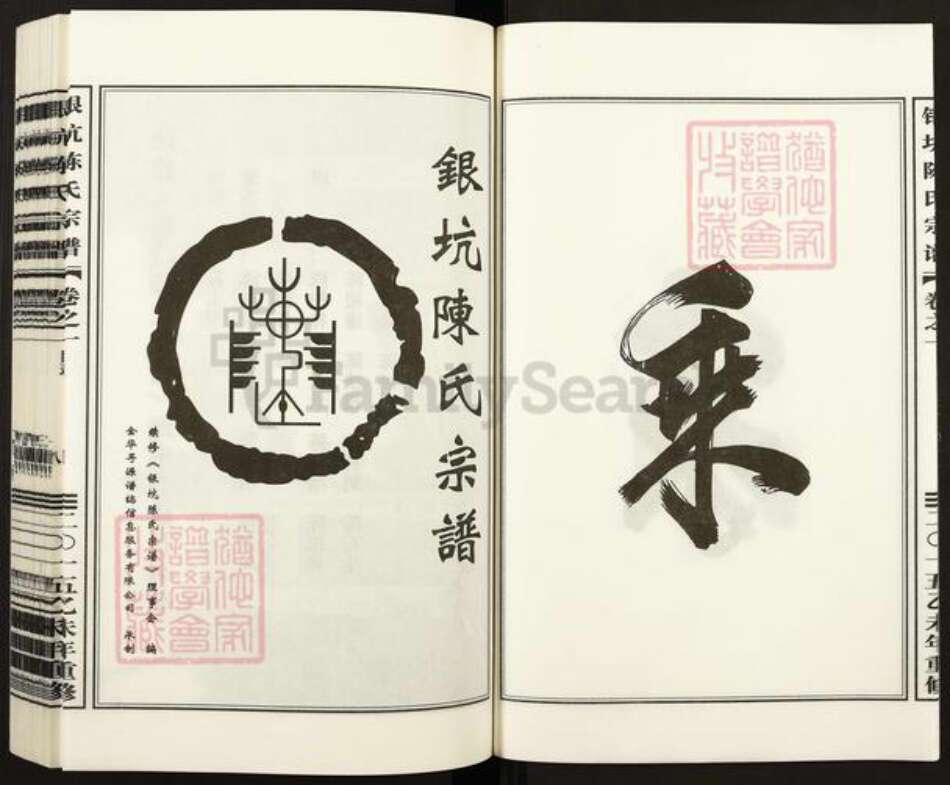 銀坑陳氏宗譜
卷之一
二〇一五乙未年重修
乘
銀坑陳氏宗譜
續修《银坑陈氏宗谱》理事会 编
金华寻源谱志信息服务有限公司 承制
银坑陈氏宗谱
卷之一
二〇一五乙未年重修
猶他家
譜學會
收藏
猶他家
譜學會
收藏
FamilySearch